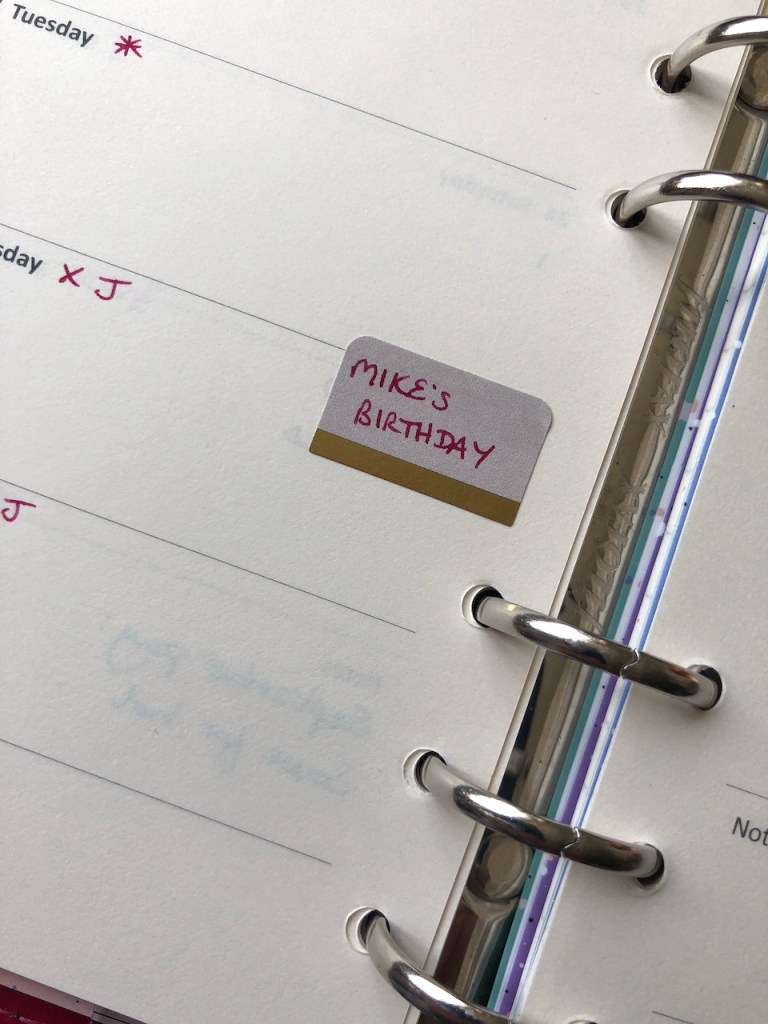 Tuesday *
sday X J
MIKE'S
BIRTHDAY
J
Not